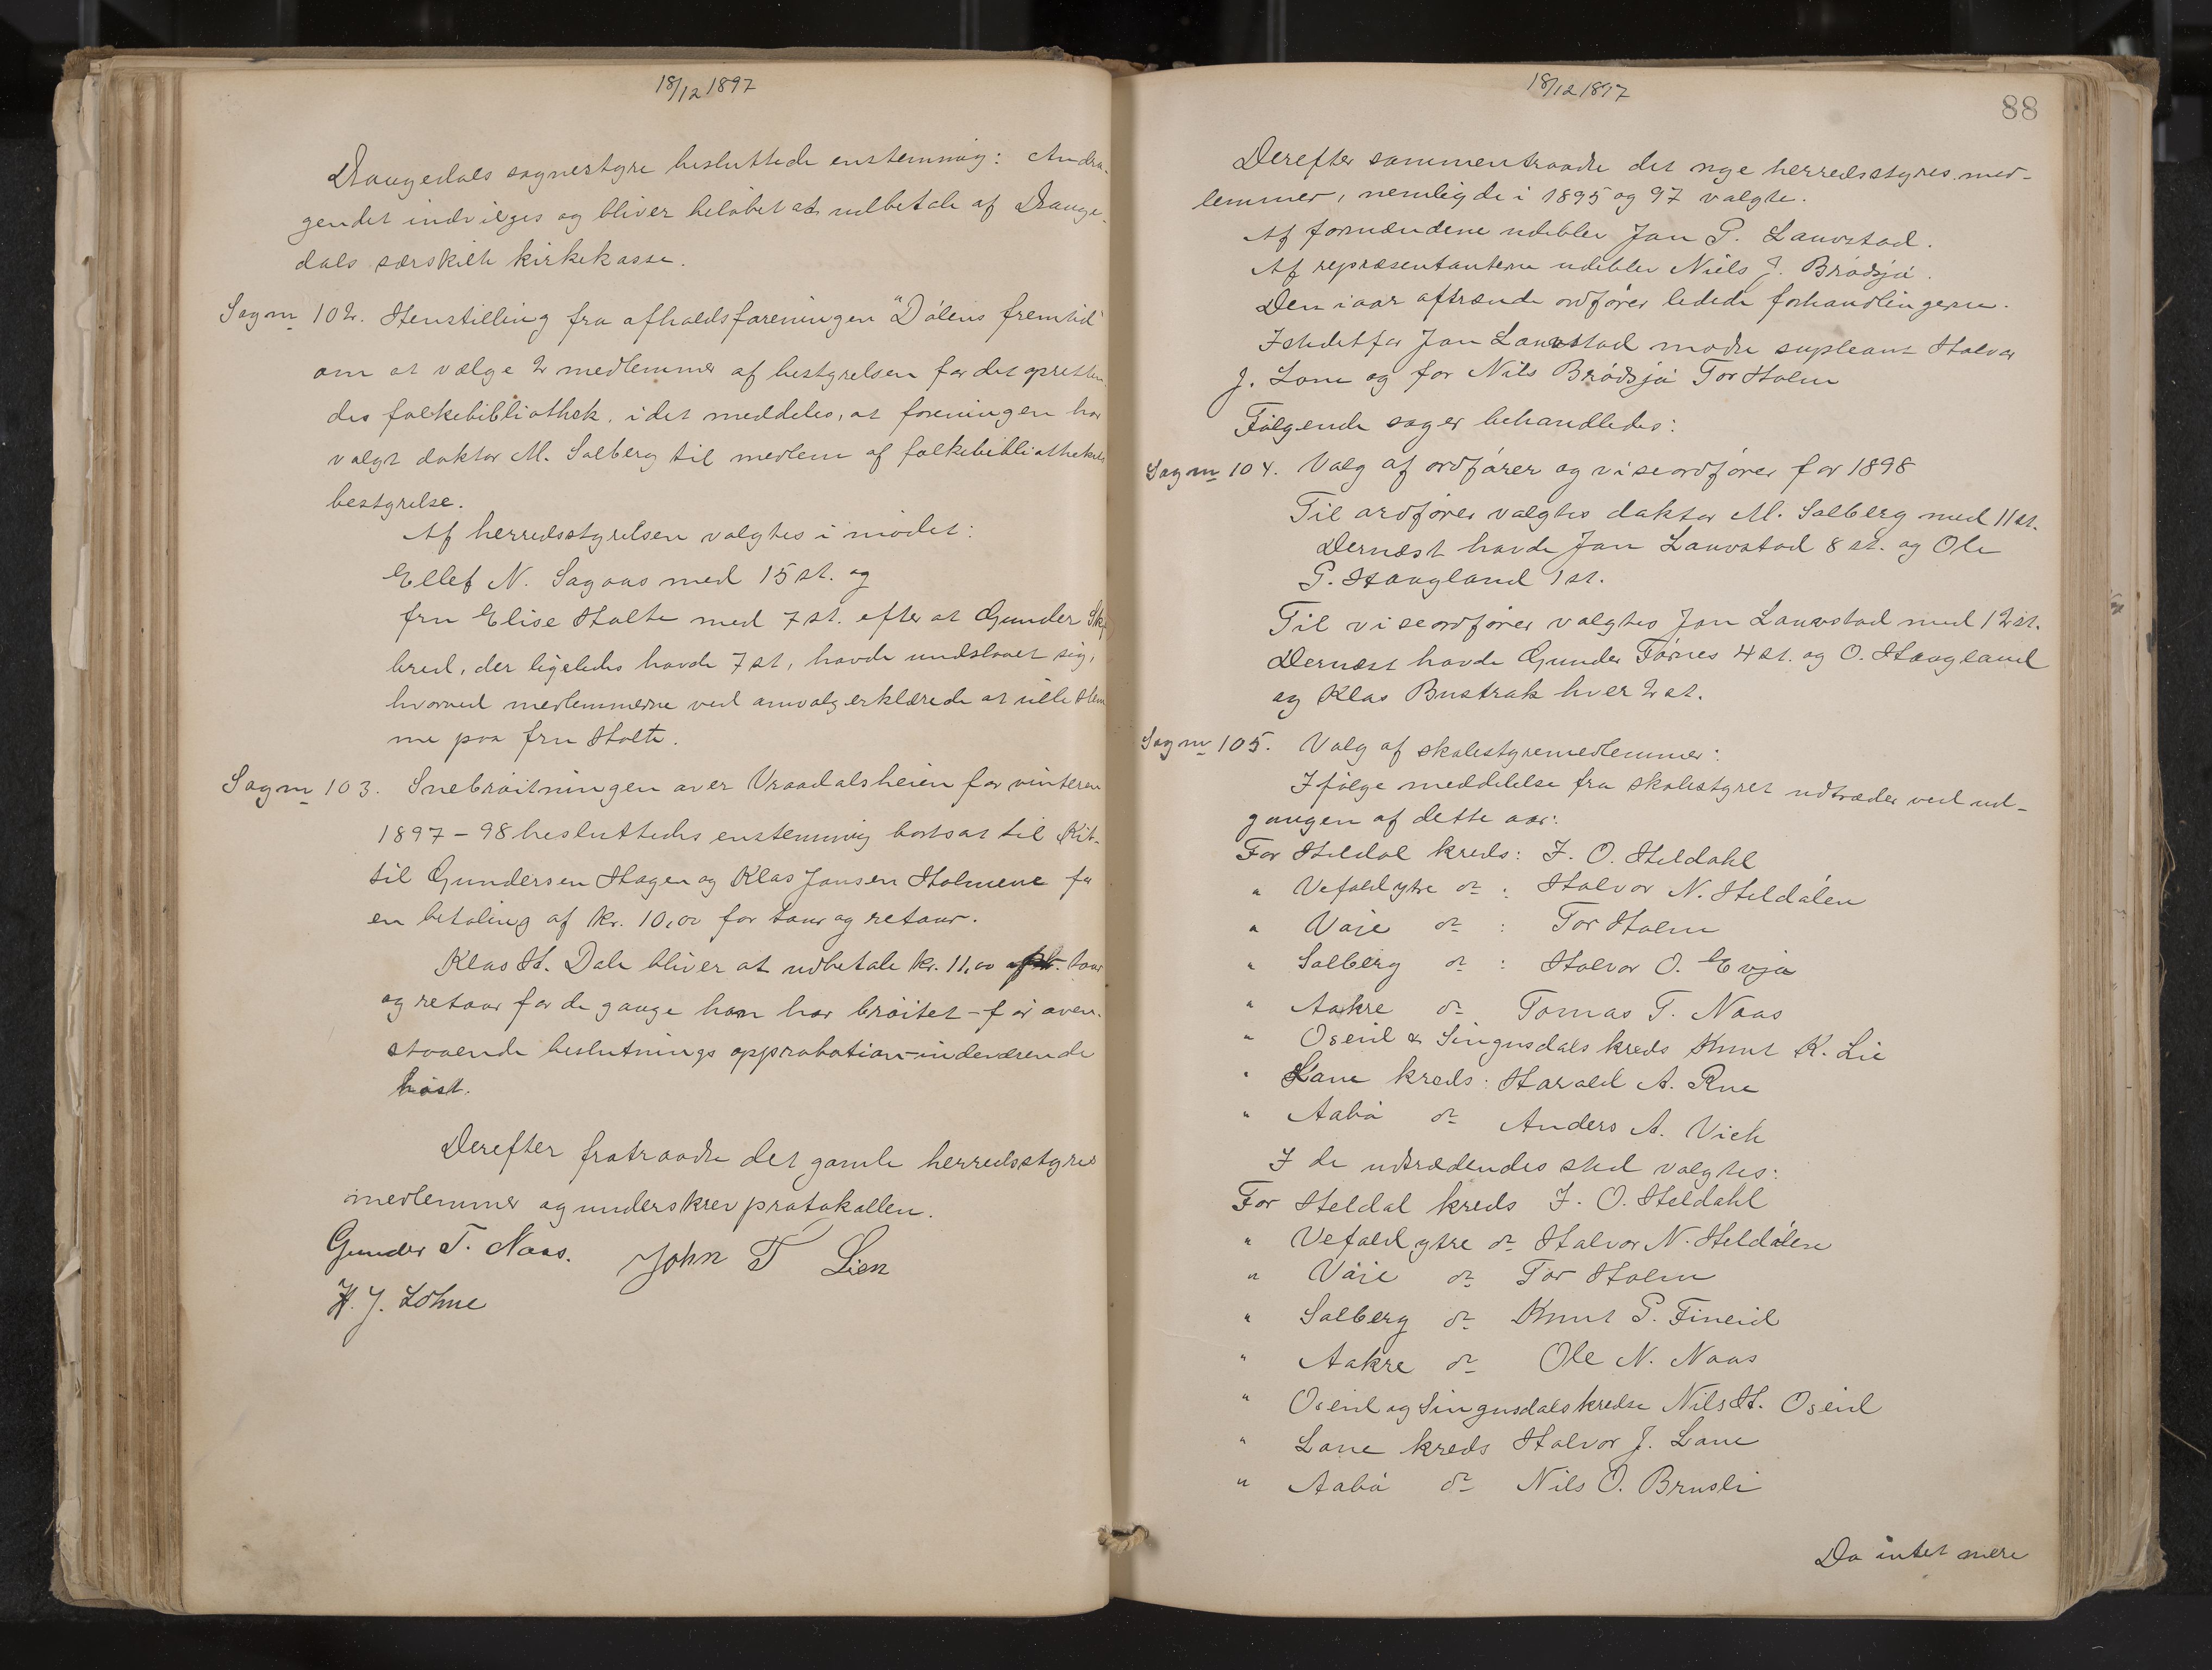 18/12 1897
Drangedals sognestyre besluttede enstemmig: Andra-
gendet indvilges og bliver beløbet at udbetale af Drange-
dals særskilte kirkekasse.
Sag nr 102. Henstilling fra afholdsforeningen "Dølens fremtid"
om at vælge 2 medlemmer af bestyrelsen for det opretten-
des folkebibliothek, idet meddeles, at foreningen har
valgt doktor M. Solberg til medlem af folkebibliothekets
bestyrelse.
Af herredsstyrelsen valgtes i mødet:
Ellef N. Sagaas med 15 st. og
fru Elise Holte med 7 st. efter at Gunder
bred, der ligeledes havde 7 st, havde undslaaet sig,
hvorved medlemmerne ved omvalg erklærede at ville stem
me paa fru Holte.
Sag nr 103. Snebrøitningen over Vraadalsheien for vinteren
1897-98 besluttedes enstemmig bortsat til Kit-
til Gundersen Hagen og Klas Jansen Holmene for
en betaling af kr. 10,00 for tour og retour.
Klas H. Dale bliver at udbetale kr. 11,00 tour
og retour for de gange han har brøitet - før oven-
staaende beslutnings approbation - indeværende
høst.
Derefter fratraadte det gamle herredsstyres
medlemmer og underskrev protokollen.
Gunder T. Naas. John T Lien
H. J. Lohne
18/12 1897
88
Derefter sammentraadte det nye herredsstyres med-
lemmer, nemlig de i 1895 og 97 valgte.
Af formændene udeblev Jan P. Lauvstad.
Af repræsentanterne udeblev Niels J. Brødsjø.
Den i aar aftrædende ordfører ledede forhandlingerne.
Istedetfor Jan Lauvstad mødte supleant Halvor
J. Lone og for Nils Brødsjø Tor Holm
Følgende sager behandledes:
Sag nr 104. Valg af ordfører og viseordfører for 1898
Til ordfører valgtes doktor M. Solberg med 11 st.
Dernæst havde Jan Lauvstad 8 st. og Ole
P. Haugland 1 st.
Til viseordfører valgtes Jan Lauvstad med 12 st.
Dernæst havde Gunder Førnes 4 st. og O. Haugland
og Klas Bustrak hver 2 st.
Sag nr 105. Valg af skolestyremedlemmer:
Ifølge meddelelse fra skolestyret udtræder ved ud-
gangen af dette aar:
For Heldal kreds: J. O. Heldahl
" Vefald ytre do : Halvor N. Heldalen
" Voie do : Tor Holm
" Solberg do : Halvor O. Evja
" Aakre do Tomas T. Naas
" Oseid & Singusdals kreds Knut K. Lie
" Lone kreds: Harald A. Rue
" Aabø do Anders A. Vieh
I de udtrædendes sted valgtes:
For Heldal kreds J. O. Heldahl
" Vefald ytre do Halvor N. Heldalen
" Voie do Tor Holm
" Solberg do Knut P. Fineid
" Aakre do Ole N. Naas
" Oseid og Singusdals kredse Nils H. Oseid
" Lone kreds Halvor J. Lone
" Aabø do Nils O. Brusli
Da intet mere